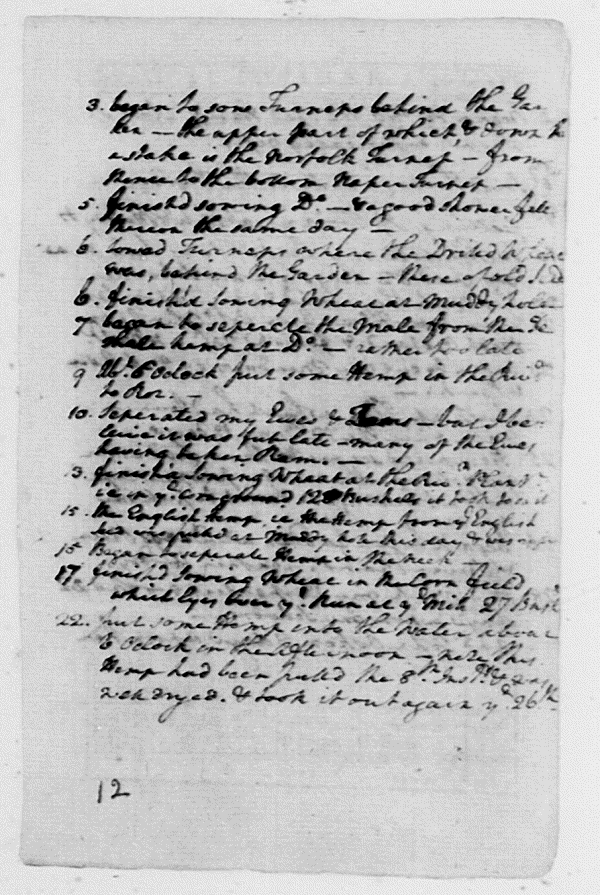 3. began to sow Turneps behind the Gar
den — the upper part of which, & down to
a stake is the Norfolk Turnep — from
thence to the bottom Naper Turnep —
5. finishd sowing Do. — & a good shower fell
thereon the same day —
6. Sowed Turneps where the Drild Wheat
was, behind the Garden — these of old Seed
6. finish'd Sowing Wheat at Muddy hole
7 began to seperate the Male from the Fe
male hemp at Do. — rather too late
9 Abt. 6 Oclock put some Hemp in the Rivr.
to Rot. —
10. Seperated my Ewes & Rams — but I be-
lieve it was full late — many of the Ewes
having taken Ram. —
13. finish'd Sowing Wheat at the Rivr. Plantn.
i.e. in ye Cornground 123 Bushels it took to do it
15. the English Hemp i.e. the Hemp from ye English
Seed was pickd at Muddy hole this day & was ripe
15 Began to seperate Hemp in the Neck —
17. finishd Sowing Wheat in the Corn field
which lyes over ye Run at ye Mill 27 Bushl.
22. put some Hemp into the Water about
6 Oclock in the Afternoon — note this
Hemp had been pulled the 8th. Inst. & was
well dryed. & took it out again ye 26th
12